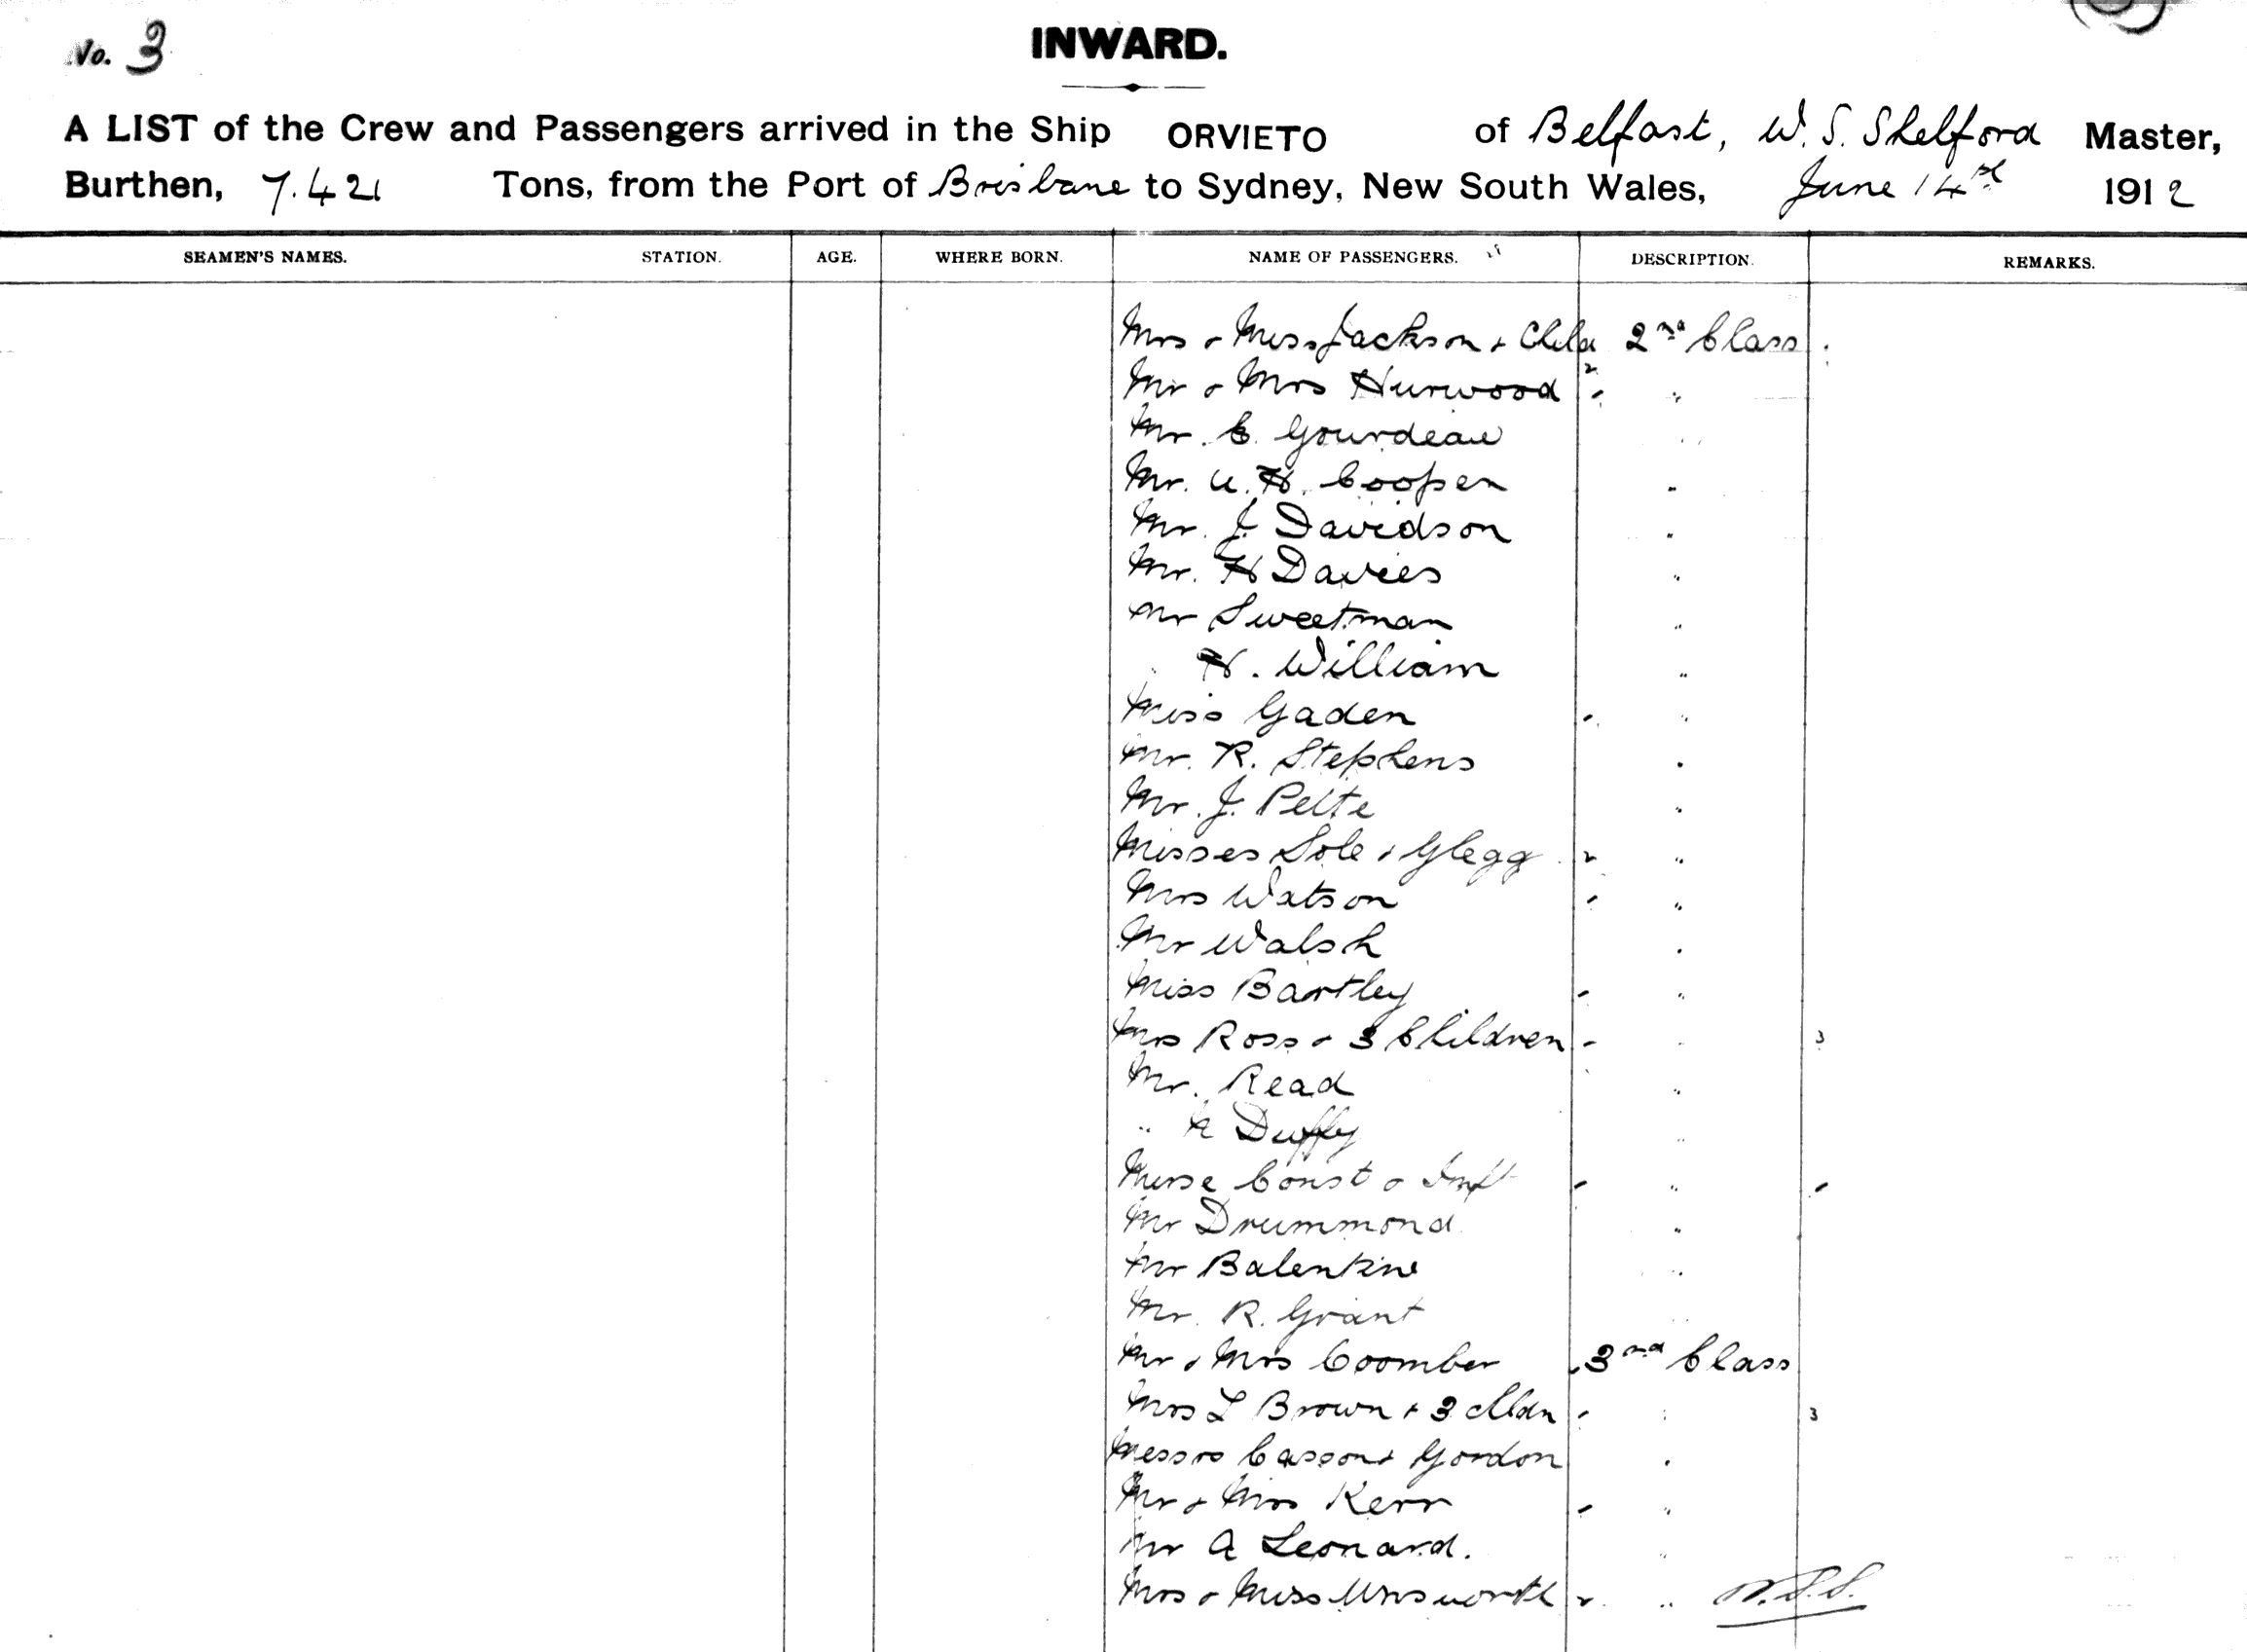 No. 3
INWARD.
A LIST of the Crew and Passengers arrived in the Ship ORVIETO of Belfast, W. S. Shelford Master,
Burthen, 7.421 Tons, from the Port of Brisbane to Sydney, New South Wales, June 14th 1912
SEAMEN'S NAMES. STATION. AGE. WHERE BORN. NAME OF PASSENGERS. DESCRIPTION. REMARKS.
Mrs & Miss Jackson & Child 2nd Class
Mr & Mrs Hurwood "
Mr. C. Gourdeau "
Mr. U. H. Cooper "
Mr. J. Davidson "
Mr. H Davies "
Mr Sweetman "
" H. William "
Miss Gaden "
Mr. R. Stephens "
Mr. J. Pelte "
Misses Sole & Glegg "
Mrs Watson "
Mr Walsh "
Miss Bartley "
Mrs Ross & 3 Children " 3
Mr. Read "
" Duffy "
Nurse Const & Inft "
Mr Drummond "
Mr Balentine "
Mr. R. Grant "
Mr & Mrs Coomber 3nd Class
Mrs L Brown & 3 Chldn " 3
Messrs Casson & Gordon "
Mr & Mrs Kerr "
Mr A Leonard. "
Mrs & Miss Unsworth " W.S.S.